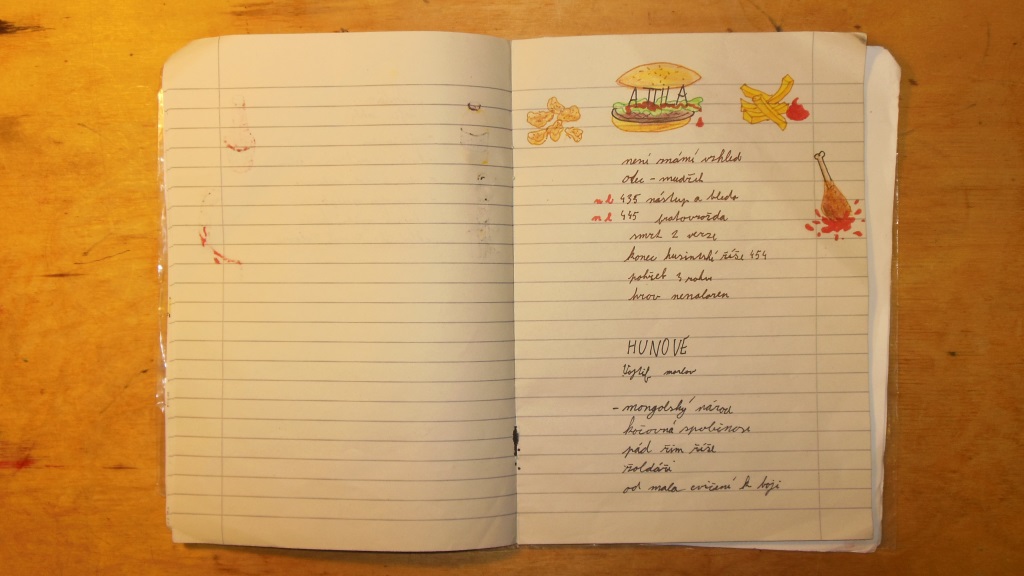 ATTILA
není známí vzhled
otec - mudžuk
n l 435 nástup a bleda
n l 445 bratovražda
smrt 2 verze
konec hunské říše 454
pohřeb 3 rakve
hrob nenalezen
HUNOVÉ
- mongolský národ
kočovná společnost
pád řím říše
žoldáři
od mala cvičení k boji